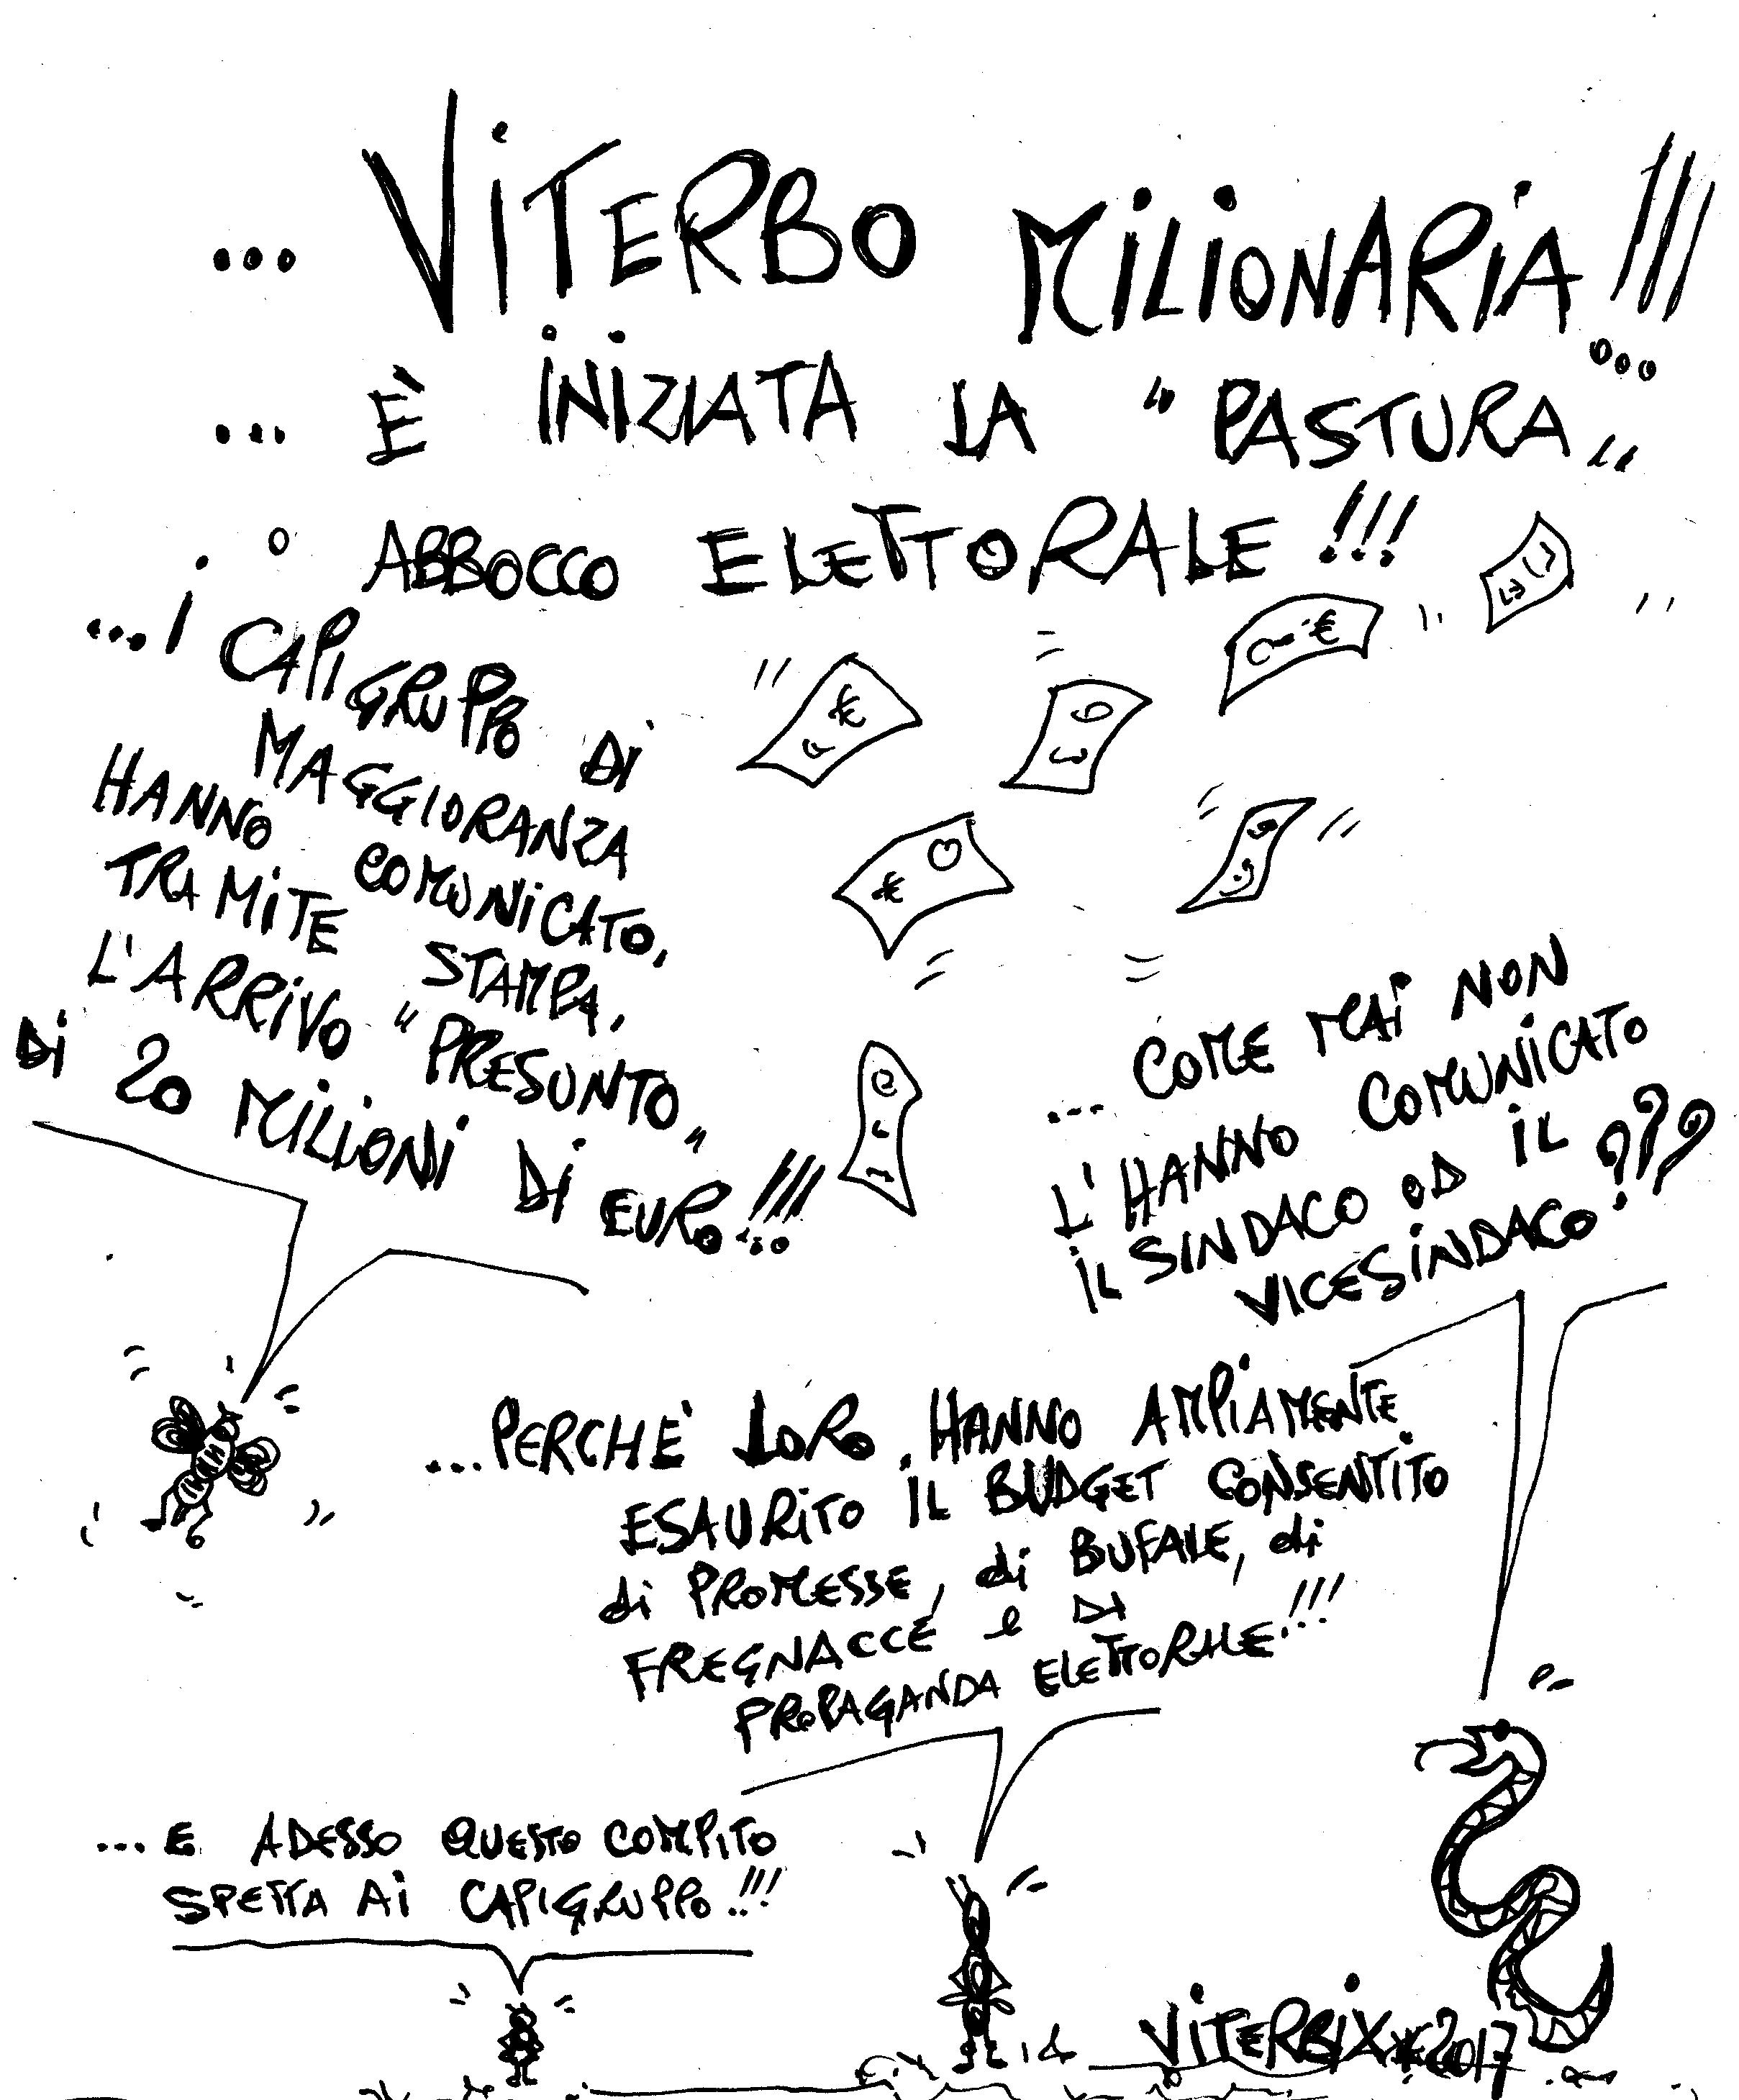 ... VITERBO MILIONARIA!!!...
... È INIZIATA LA "PASTURA"
o ABBOCCO ELETTORALE!!!
...I CAPIGRUPPO DI
MAGGIORANZA
HANNO COMUNICATO,
TRAMITE STAMPA,
L'ARRIVO "PRESUNTO"
DI 20 MILIONI DI EURO!!!...
... COME MAI NON
L'HANNO COMUNICATO
IL SINDACO OD IL
VICESINDACO???
...PERCHE' LORO HANNO AMPIAMENTE
ESAURITO IL BUDGET CONSENTITO
di PROMESSE, di BUFALE, di
FREGNACCE e DI
PROPAGANDA ELETTORALE!!!
...E ADESSO QUESTO COMPITO
SPETTA AI CAPIGRUPPO!!!
VITERBIX 2017